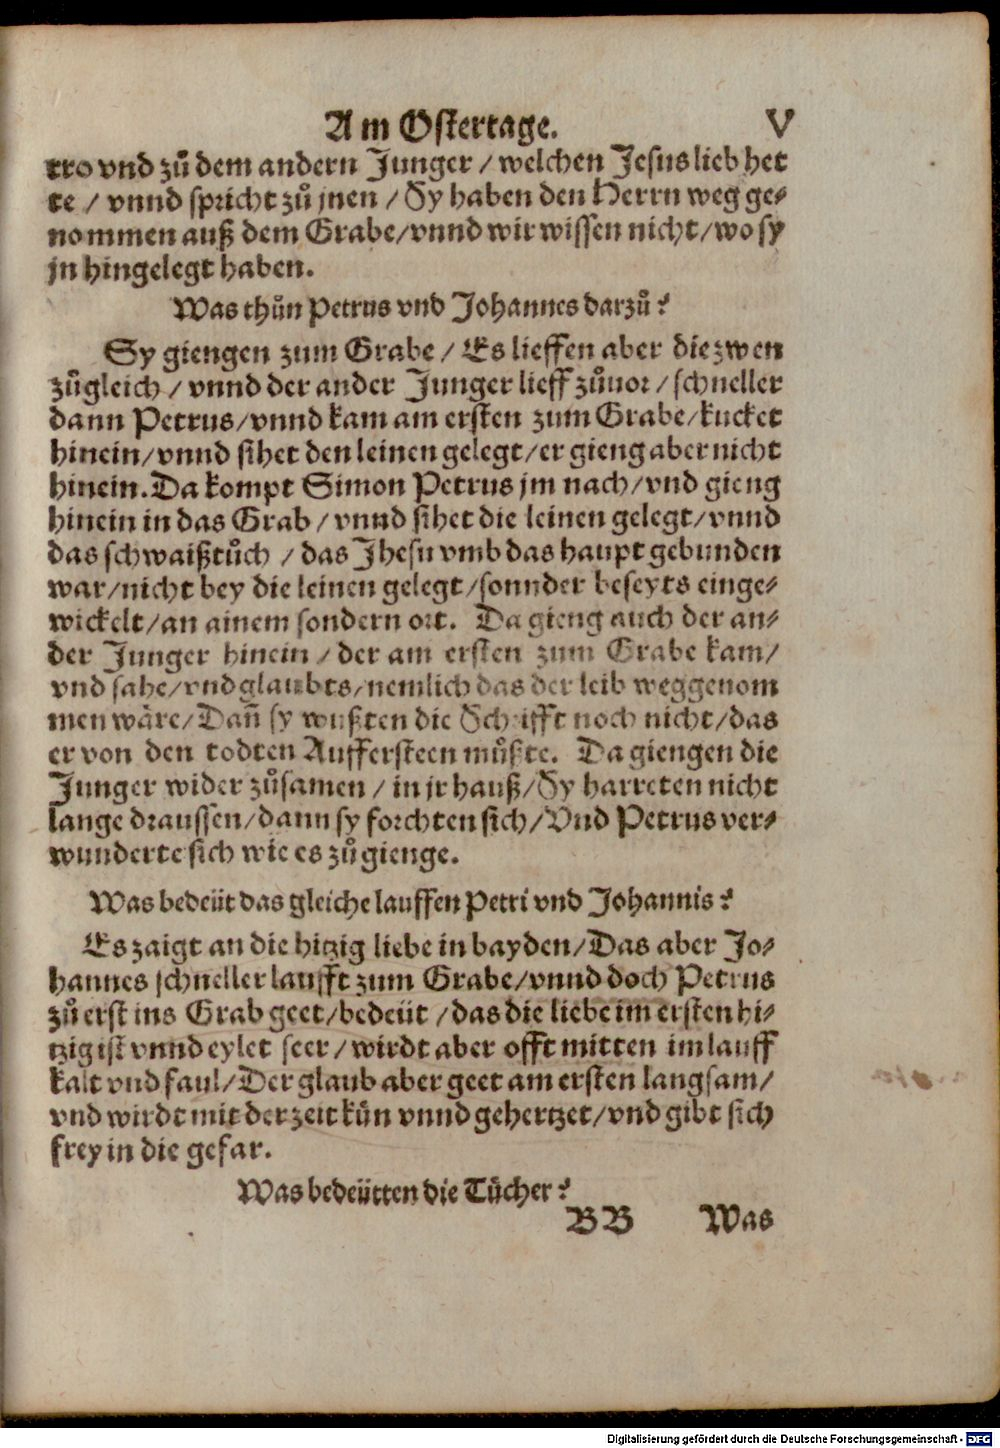 Am Ostertage. V
tro vnd zů dem andern Junger / welchen Jesus lieb het
te / vnnd spricht zů jnen / Sy haben den Herrn weg ge-
nommen auß dem Grabe/vnnd wir wissen nicht/wo sy
jn hingelegt haben.
Was thůn Petrus vnd Johannes darzů?
Sy giengen zum Grabe / Es lieffen aber die zwen
zůgleich / vnnd der ander Junger lieff zůuor / schneller
dann Petrus/vnnd kam am ersten zum Grabe/kucket
hinein/vnnd sihet den leinen gelegt/er gieng aber nicht
hinein. Da kompt Simon Petrus jm nach/vnd gieng
hinein in das Grab / vnnd sihet die leinen gelegt/vnnd
das schwaißtůch / das Jhesu vmb das haupt gebunden
war/nicht bey die leinen gelegt/sonnder beseyts einge-
wickelt/an ainem sondern ort. Da gieng auch der an-
der Junger hinein / der am ersten zum Grabe kam/
vnd sahe/vnd glaubts/nemlich das der leib weggenom
men wäre/Dañ sy wußten die Schrifft noch nicht/das
er von den todten Auffersteen můßte. Da giengen die
Junger wider zůsamen / in jr hauß/Sy harreten nicht
lange draussen/dann sy forchten sich/Vnd Petrus ver-
wunderte sich wie es zůgienge.
Was bedeüt das gleiche lauffen Petri vnd Johannis?
Es zaigt an die hitzig liebe in bayden/Das aber Jo-
hannes schneller laufft zum Grabe/vnnd doch Petrus
zů erst ins Grab geet/bedeüt /das die liebe im ersten hi-
tzig ist vnnd eylet seer / wirdt aber offt mitten im lauff
kalt vnd faul/Der glaub aber geet am ersten langsam/
vnd wirdt mit der zeit kün vnnd gehertzet/vnd gibt sich
frey in die gefar.
Was bedeütten die Tücher?
BB Was
Digitalisierung gefördert durch die Deutsche Forschungsgemeinschaft - DFG